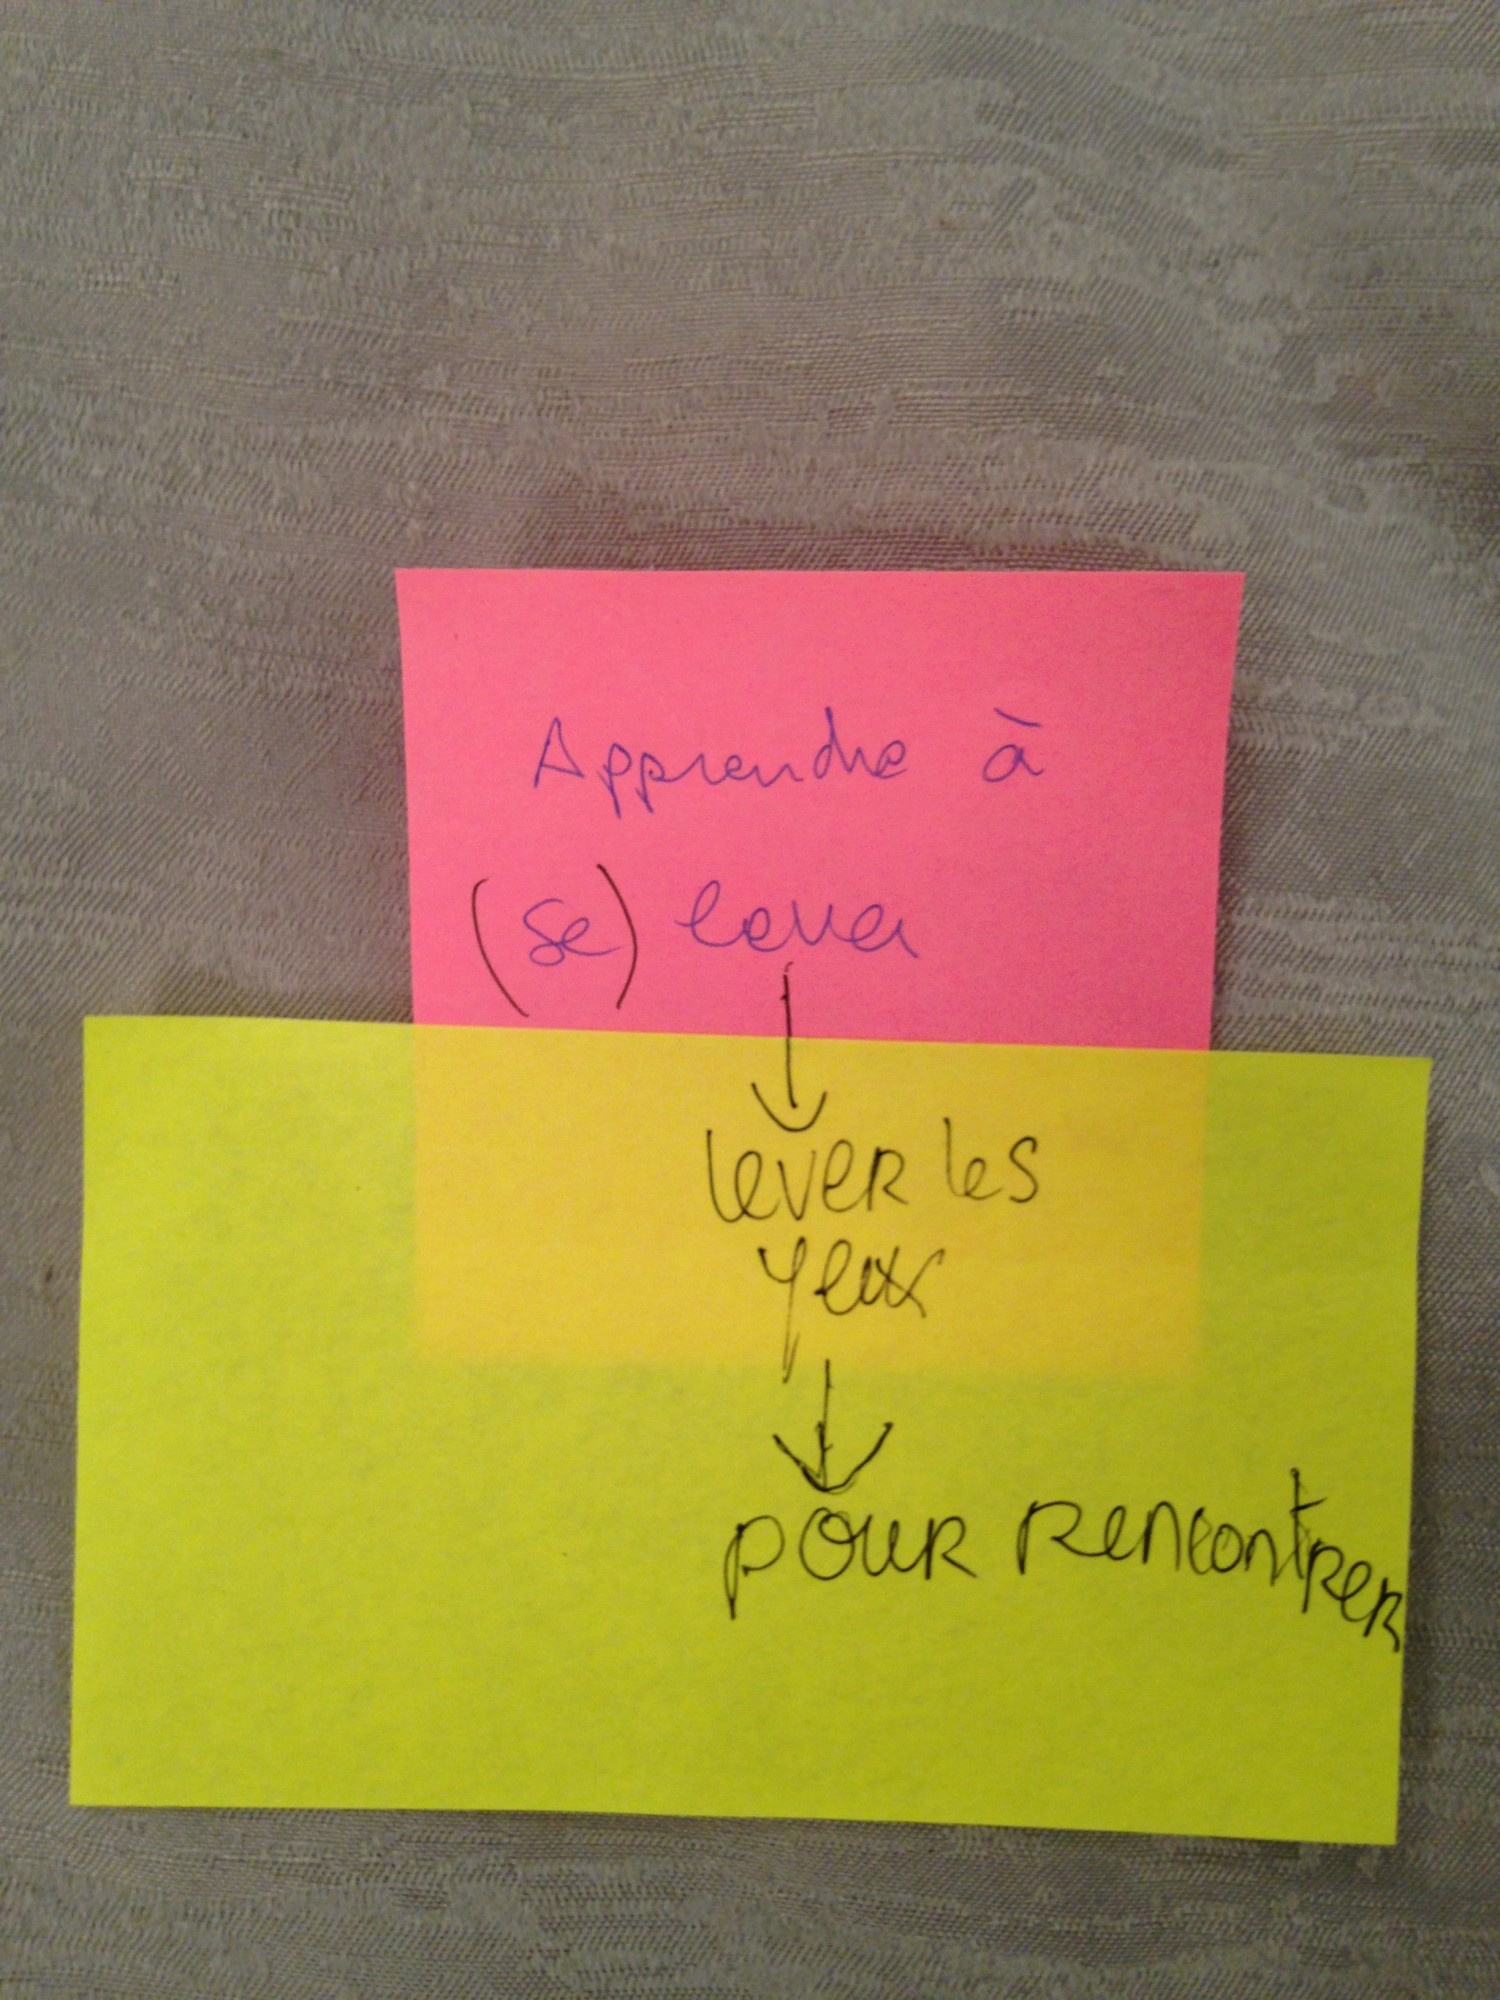 Apprendre à
(se) lever
lever les
yeux
pour rencontrer